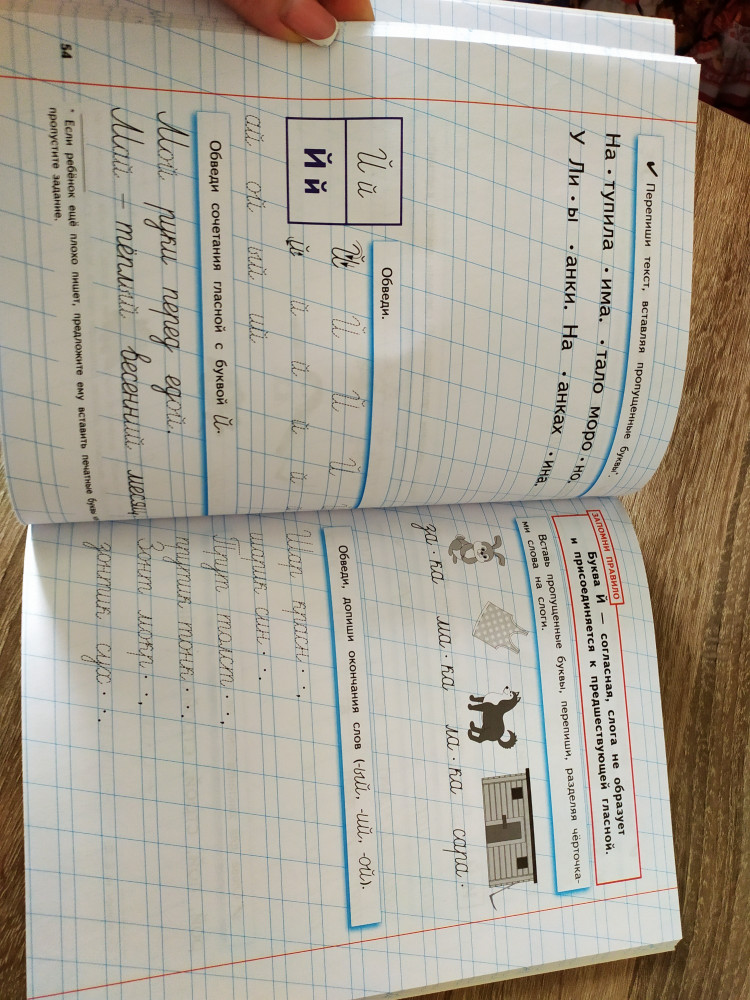 ✔ Перепиши текст, вставляя пропущенные буквы*.
На • тупила • има. • тало моро • но.
У Ли • ы • анки. На • анках • ина.
Обведи.
Й й
Й й
Й Й Й Й
й й й й й
ай ой ый ий
Обведи сочетания гласной с буквой Й.
Мой руки перед едой.
Май – тёплый весенний месяц
* Если ребёнок ещё плохо пишет, предложите ему вставить печатные буквы
пропустите задание.
54
ЗАПОМНИ ПРАВИЛО
Буква Й — согласная, слога не образует
и присоединяется к предшествующей гласной.
Вставь пропущенные буквы, перепиши, разделяя чёрточка-
ми слова на слоги.
за • ка ма • ка ла • ка сара •
Обведи, допиши окончания слов (-ый, -ий, -ой).
Шар красн • •,
шарик син • •.
Прут толст • •,
прутик тонк • •.
Зонт мокр • •,
зонтик сух • •.